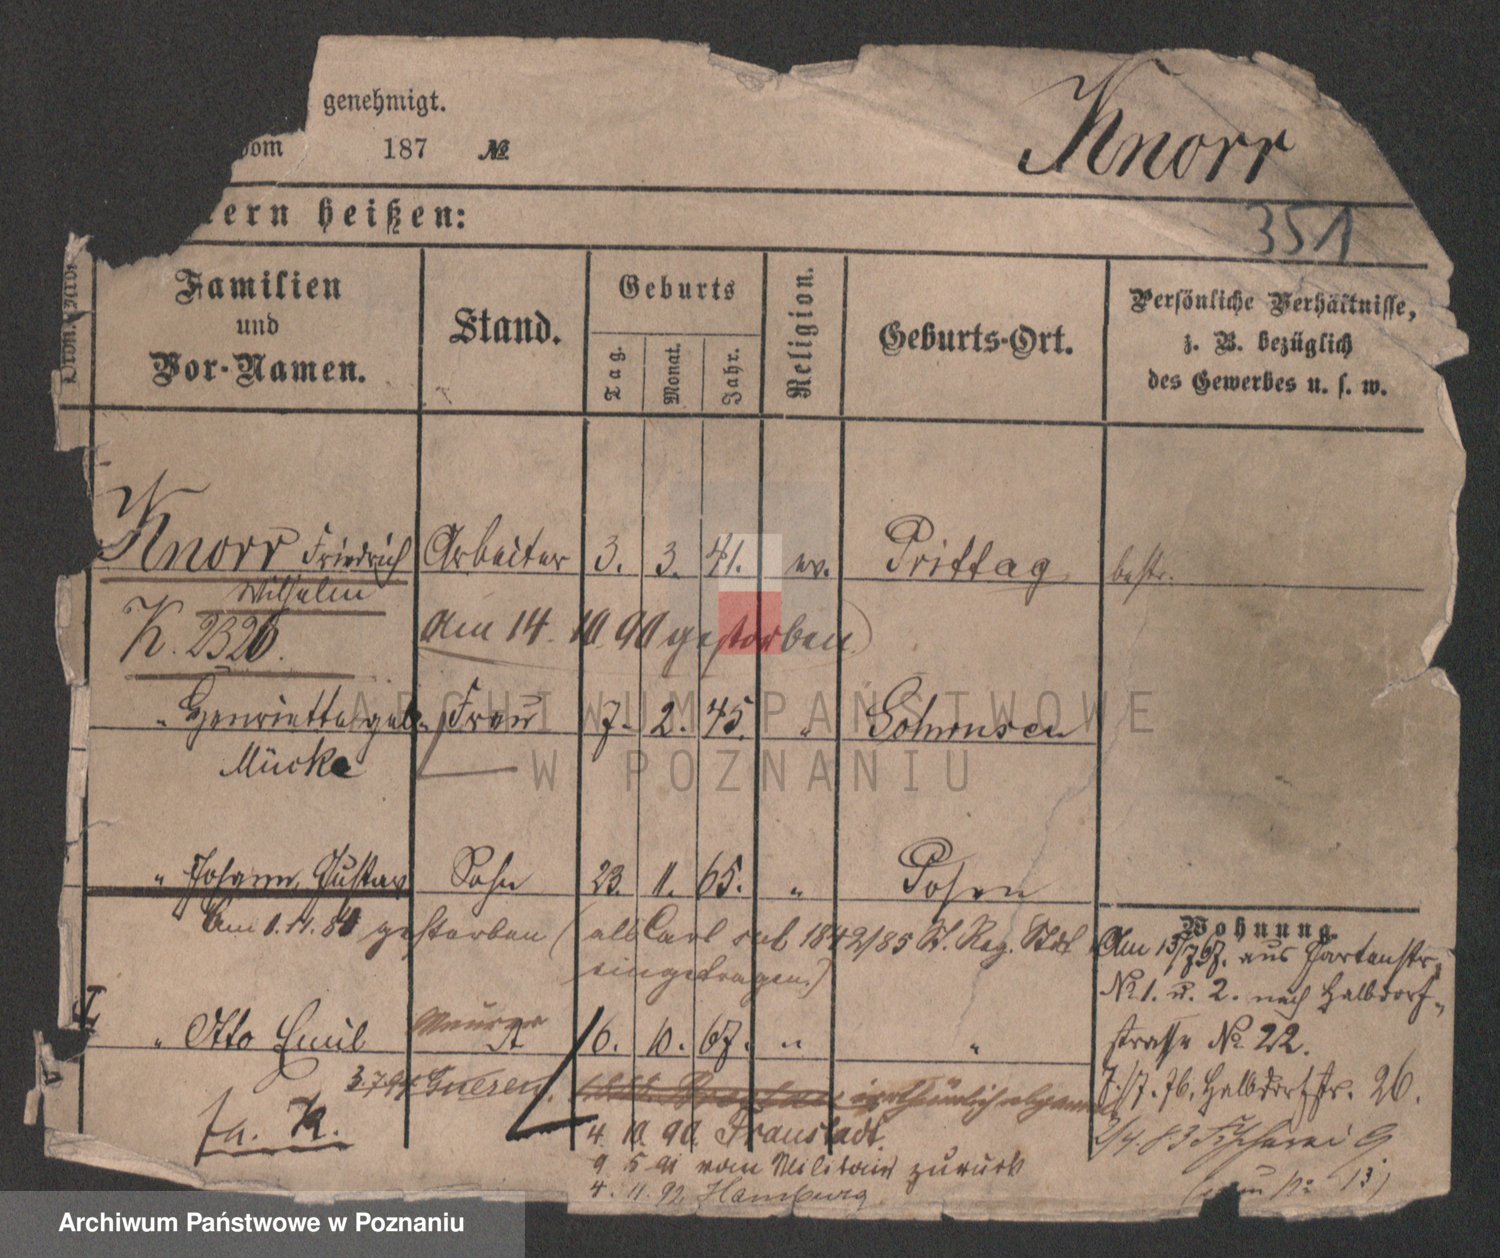 genehmigt.
vom 187 №
Knorr
351
tern heißen:
Familien
und
Vor-Namen.
Stand.
Geburts
Tag.
Monat.
Jahr.
Religion.
Geburts-Ort.
Persönliche Verhältnisse,
z. B. bezüglich
des Gewerbes u. s. w.
Knorr Friedrich Arbeiter 3. 3. 41. ev. Prittag bestr.
Wilhelm
K. 2326. am 14. 10. 90 gestorben
" Henriette geb. Frau 7. 2. 45. "
Mücke
ARCHIWUM PAŃSTWOWE
W POZNANIU
" Johann, Gustav Sohn 23. 11. 65. " Posen
Am 1. 11. 84 gestorben (als Carl sub 1842/85 St. Reg. Stdt
eingetragen.)
Wohnung.
Am 13/7 67. aus Gartenstr.
№ 1. u. 2. nach Halbdorf-
strasse № 22.
" Otto Emil Maurer 6. 10. 67. " "
7./7. 76. Halbdorfstr. 26.
3.7.94 irrthümlich
fa. K.
4. 10. 90 Fraustadt
2/4. 83 Fischerei 9
9. 5. 91 vom Militair zurück
4. 11. 92. Hamburg
13)
Archiwum Państwowe w Poznaniu